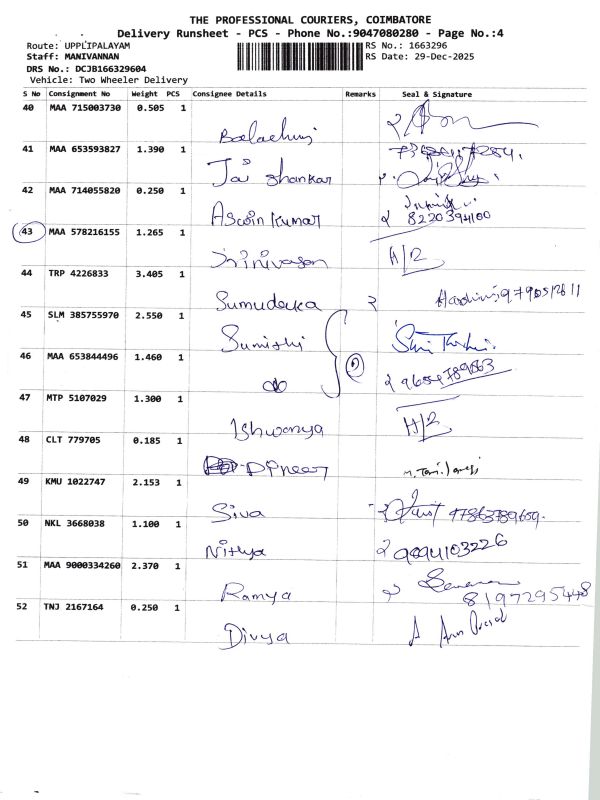 THE PROFESSIONAL COURIERS, COIMBATORE
Delivery Runsheet - PCS - Phone No.:9047080280 - Page No.:4
Route: UPPLIPALAYAM RS No.: 1663296
Staff: MANIVANNAN RS Date: 29-Dec-2025
DRS No.: DCJB166329604
Vehicle: Two Wheeler Delivery
S No Consignment No Weight PCS Consignee Details Remarks Seal & Signature
40 MAA 715003730 0.505 1
41 MAA 653593827 1.390 1
Jai Shankar
42 MAA 714055820 0.250 1
Aswin Kumar 8220394100
43 MAA 578216155 1.265 1
Srinivasan H/2
44 TRP 4226833 3.405 1
Sumudeka
45 SLM 385755970 2.550 1
Sumithi
46 MAA 653844496 1.460 1
2
do 9654789863
47 MTP 5107029 1.300 1
Ishwanya H/2
48 CLT 779705 0.185 1
49 KMU 1022747 2.153 1
Siva 97863789609
50 NKL 3668038 1.100 1
Nithya 9094103226
51 MAA 9000334260 2.370 1
Ramya 8197295448
52 TNJ 2167164 0.250 1
Divya